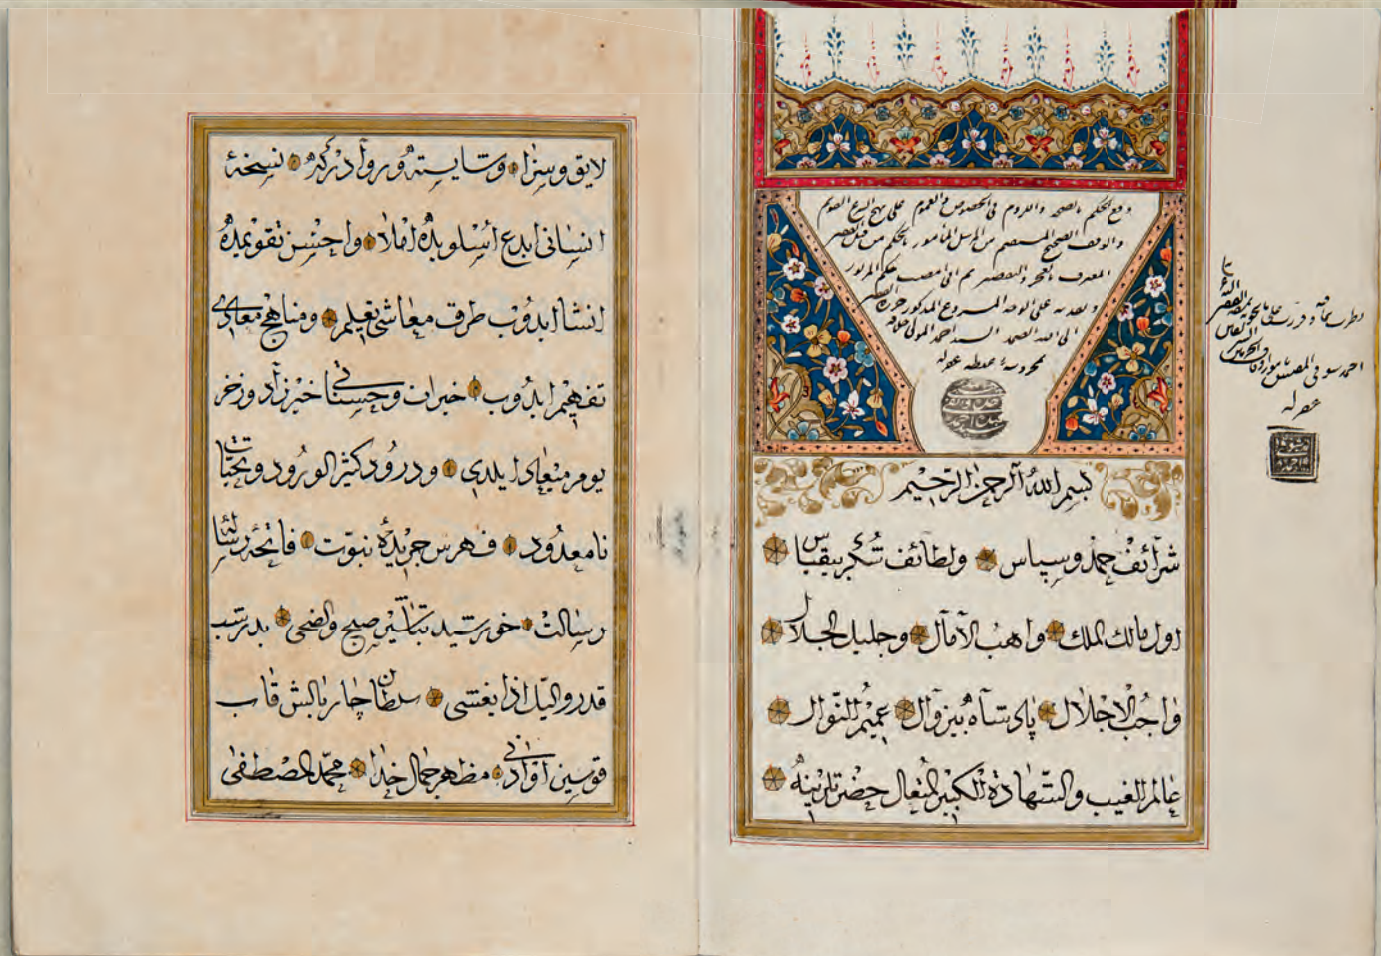 وقع الحكم بالصحة واللزوم في الخصوص والعموم على نهج الشرع
والوقف الصحيح من المأمور بالحكم من قبل
المعترف بالعجز والتقصير
على الوجه المشروع المذكور حرره الفقير
الى الله الصمد السيد احمد المولى خلافة
بمحروسة غفر له
بسم الله الرحمن الرحيم
شرآئف حمد وسپاس ولطائف شكر بيقياس
اول مالك الملك واهب الآمال وجليل الجلال
واجب الاجلال پادشاه بيزوال عميم النوال
عالم الغيب والشهادة الكبير المتعال حضرتلرينه
نظرت
احمد المفتش بامور اوقاف الحرمين
غفر له
لايق وسزا وشايسته وروادركه نسخهٔ
انسانى ابدع اسلوبده املا واحسن تقويمده
انشا ايدوب طرق معاشى تعليم ومناهج معادى
تفهيم ايدوب خيرات وحسناتى خير زاد وذخر
يوم ميعاد ايلدى ودرود كثير الورود وتحيات
نامعدود فهرس جريدهٔ نبوت فاتحهٔ رسالهٔ
رسالت خورشيد تباشير صبح والضحى بدر شب
قدر واليل اذا يغشى سلطان چار بالش قاب
قوسين او ادنى مظهر جمال خدا محمد المصطفى